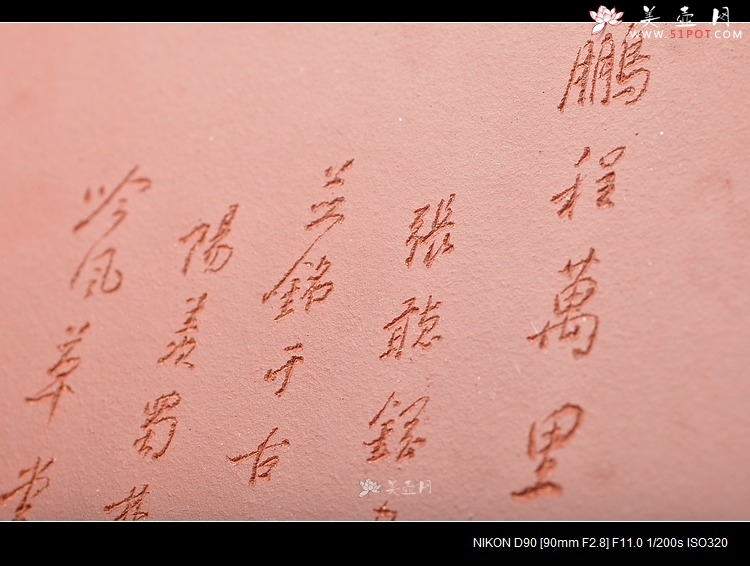 美壶网
WWW.51POT.COM
鵬程萬里
張聽
並銘于古
陽羨蜀
吟風草堂
美壶网
NIKON D90 [90mm F2.8] F11.0 1/200s ISO320